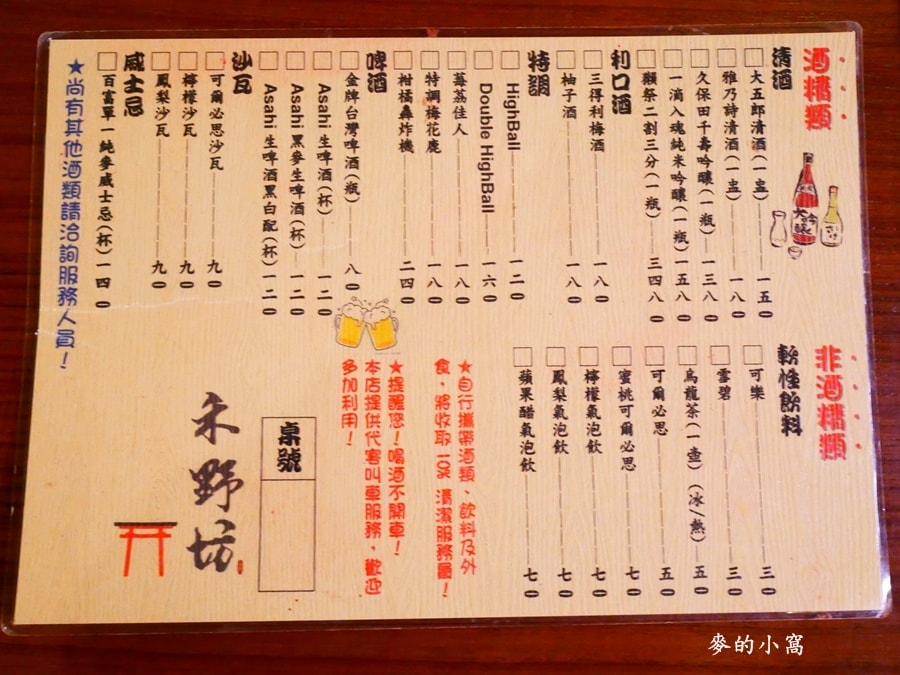 酒精類
清酒
大五郎清酒(一盅) 一五0
雅乃詩清酒(一盅) 一八0
久保田千壽吟釀(一瓶) 一三八0
一滴入魂純米吟釀(一瓶) 一五八0
獺祭二割三分(一瓶) 三四八0
利口酒
三得利梅酒 一八0
柚子酒 一八0
特調
HighBall 一二0
Double HighBall 一六0
莓荔佳人 一八0
特調梅花鹿 一八0
柑橘轟炸機 二四0
啤酒
金牌台灣啤酒(瓶) 八0
Asahi 生啤酒(杯) 一二0
Asahi 黑麥生啤酒(杯) 一二0
Asahi 生啤酒黑白配(杯) 一二0
沙瓦
可爾必思沙瓦 九0
檸檬沙瓦 九0
鳳梨沙瓦 九0
威士忌
百富單一純麥威士忌(杯) 一四0
★尚有其他酒類請洽詢服務人員!
非酒精類
軟性飲料
可樂 三0
雪碧 三0
烏龍茶(一壺)(冰/熱) 五0
可爾必思 五0
蜜桃可爾必思 七0
檸檬氣泡飲 七0
鳳梨氣泡飲 七0
蘋果醋氣泡飲 七0
★自行攜帶酒類、飲料及外
食,將收取10%清潔服務費!
★提醒您!喝酒不開車!
本店提供代客叫車服務,歡迎
多加利用!
桌號
禾野坊
大吟釀
麥的小窩